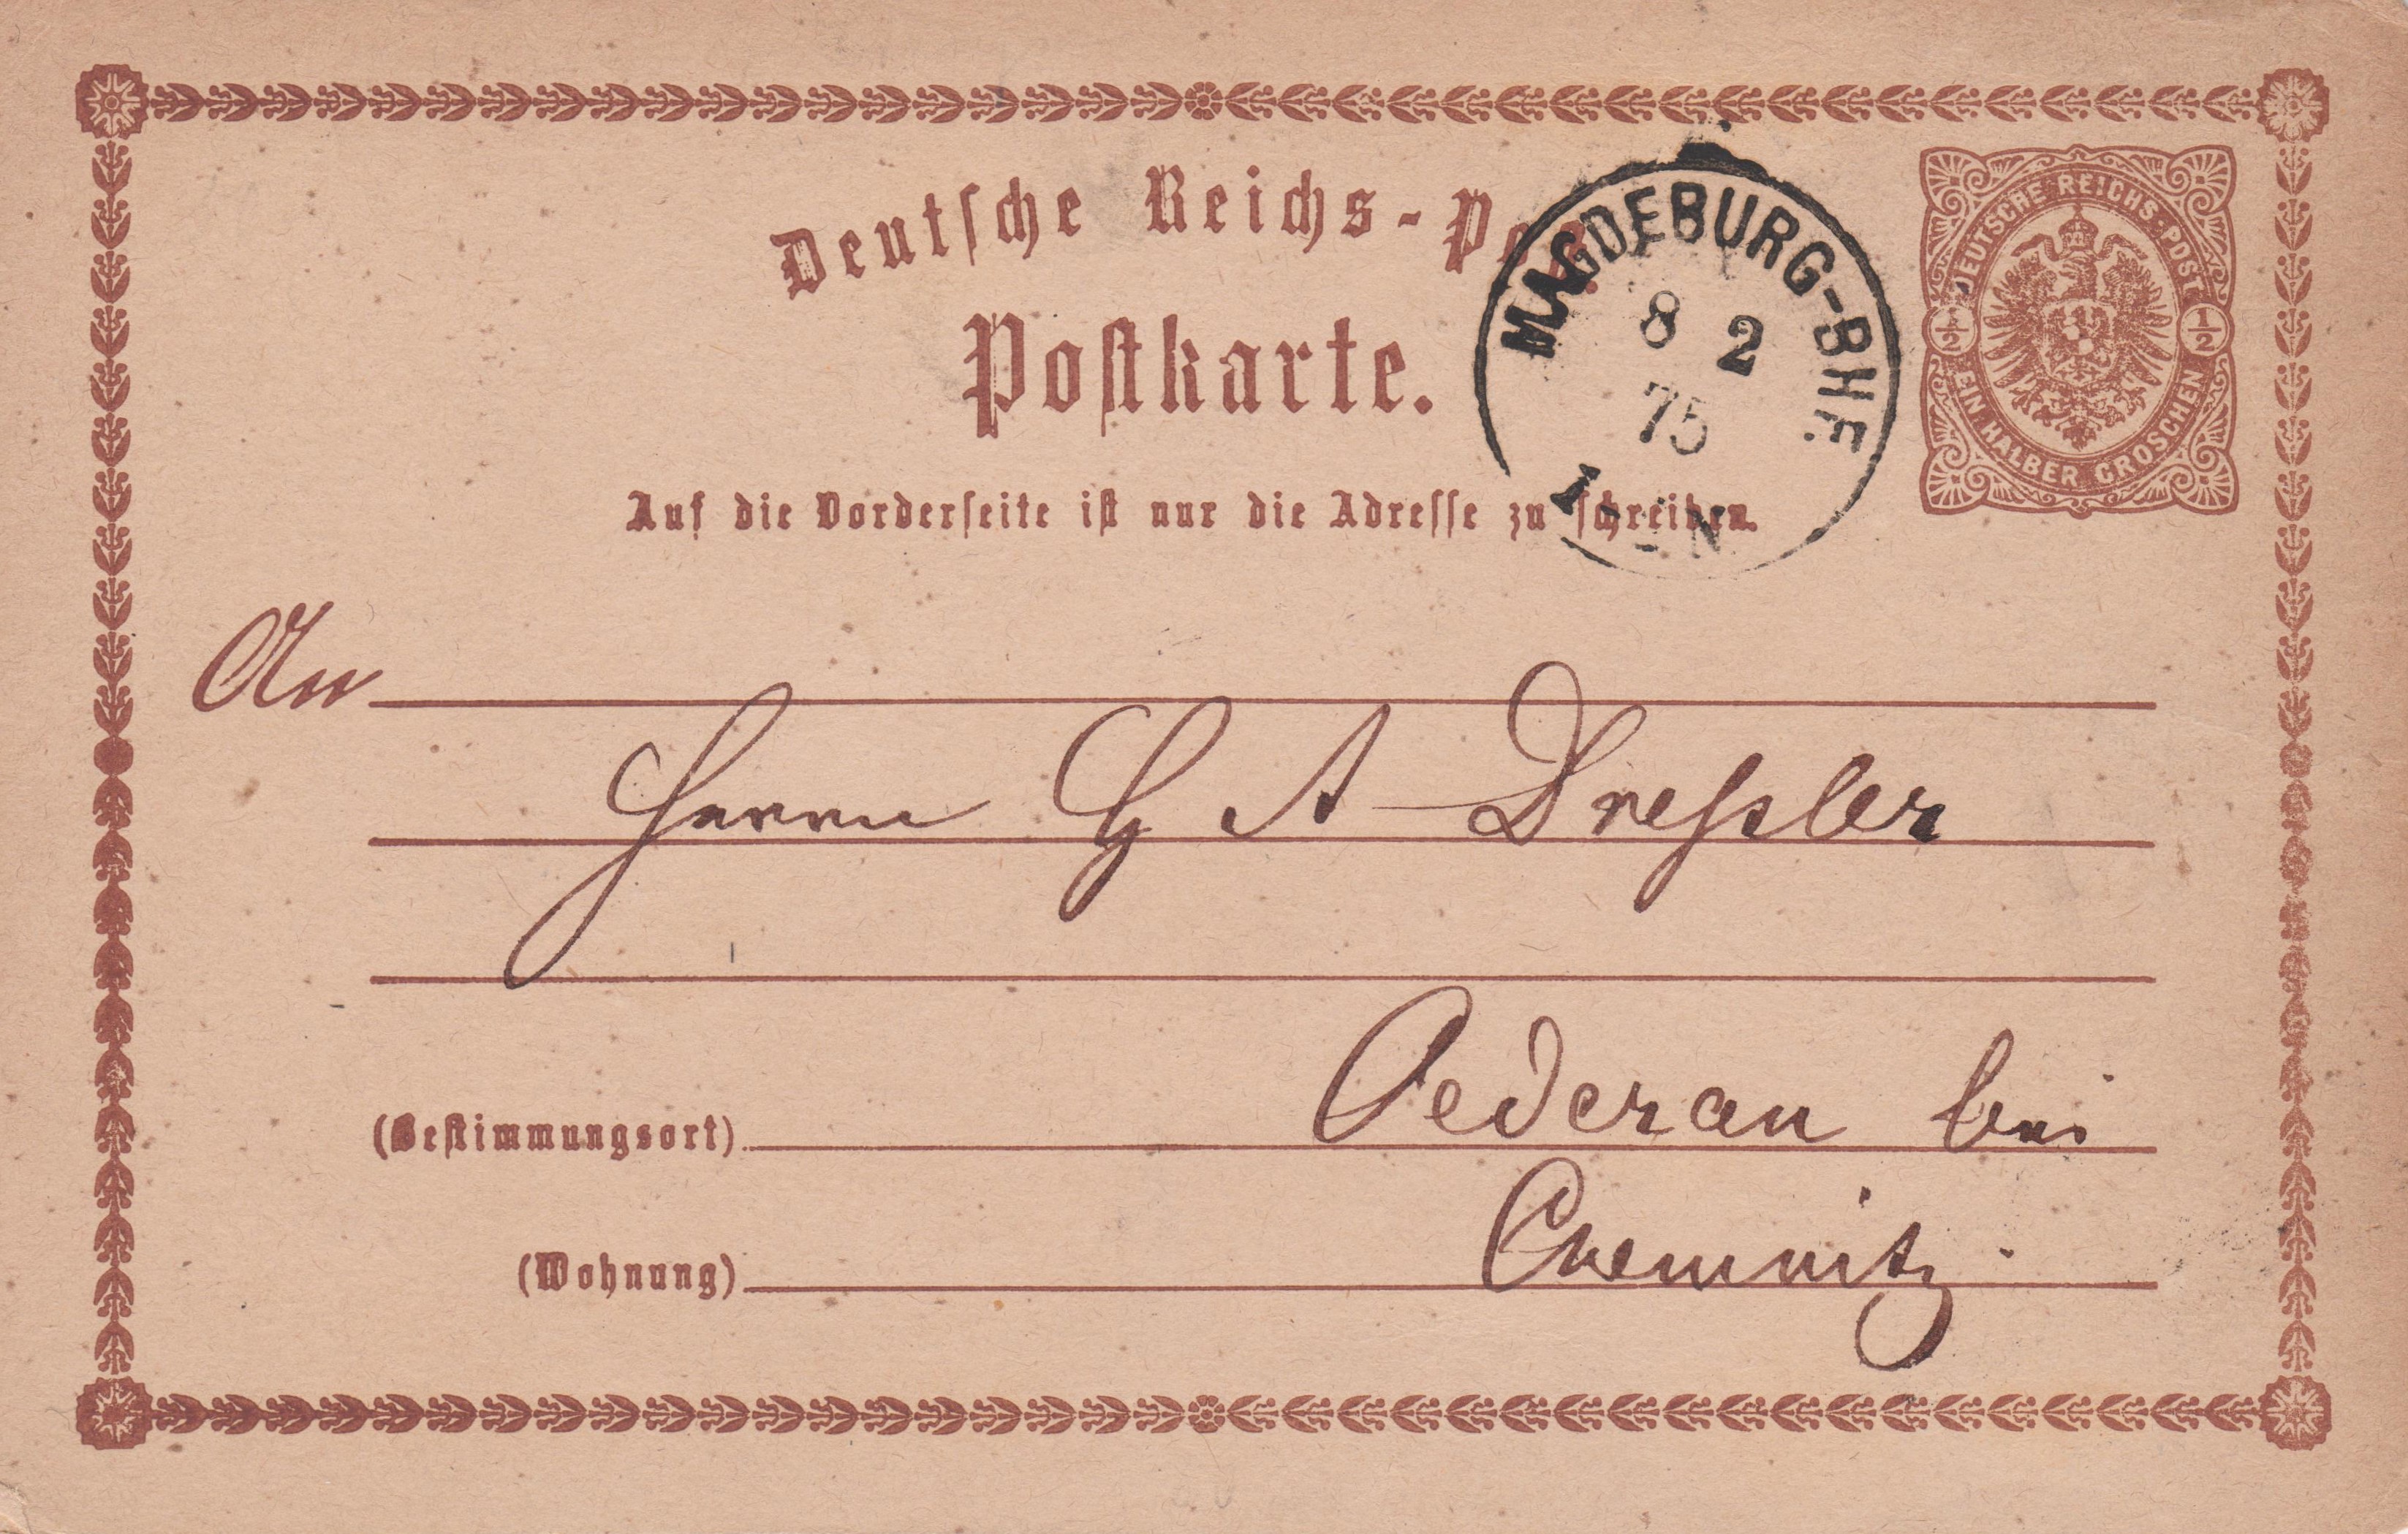 Deutsche Reichs-Post.
Postkarte.
MAGDEBURG-BHF.
8 2
75
1 N
DEUTSCHE REICHS-POST
1/2 1/2
EIN HALBER GROSCHEN
Auf die Vorderseite ist nur die Adresse zu schreiben.
An
Herrn G A Dreßler
(Bestimmungsort) Oederan bei
(Wohnung) Chemnitz.